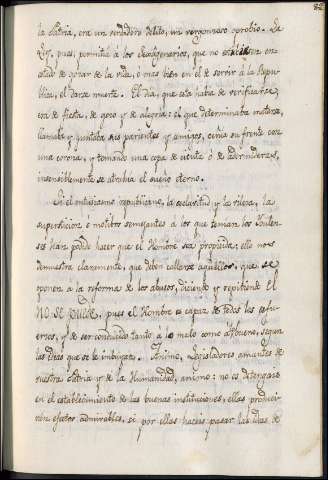 82
la Patria, era un verdadero delito, un vergonzoso oprobio. La
Ley, pues, permitia á los Sexâgenarios, que no estuviesen en
estado de gozar de la vida, ó mas bien en el de servir á la Repu-
blica, el darse muerte. El dia, que esta habia de verificarse,
era de fiesta, de gozo y de alegria: el que determinaba matarse,
llamaba y juntaba sus parientes y amigos, ceñia su frente con
una corona, y tomando una copa de cicuta ó de adormideras,
insensiblemente se atrahia el sueño eterno.
Si el entusiasmo republicano, la esclavitud y la rileza, la
supersticion ó motibos semejantes á los que tenian los
ses han podido hacer que el Hombre sea propicida; ello nos
demuestra claramente, que deben callarse aquellos, que se
oponen a la reforma de los abusos, diciendo y repitiendo El
NO SE PUEDE, pues el Hombre es capaz de todos los esfu-
erzos, y de ser conducido tanto á lo malo como al bueno, segun
las ideas que se le imbuyan. Animo, Legisladores amantes de
nuestra Patria y de la Humanidad, animo: no os detengais
en el establecimiento de las buenas instituciones, ellas produci-
rán efectos admirables, si por ellas haceis pasar las ideas de